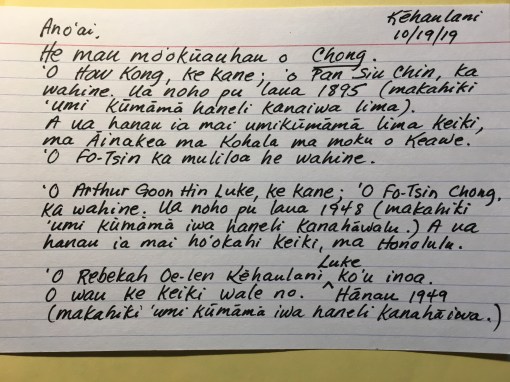 Kēhaulani
Ano'ai. 10/19/19
He mau mo'okūauhau o Chong.
'O How Kong, ke kane; 'o Pan Siu Chin, ka
wahine. Ua noho pu laua 1895 (makahiki
'umi kūmāmā haneli kanaiwa lima).
A ua hanau ia mai umikūmāmā lima keiki,
ma Āinakea ma Kohala ma moku o Keawe.
'O Fo-Tsin ka muliloa he wahine.
'O Arthur Goon Hin Luke, ke kane; 'O Fo-Tsin Chong,
ka wahine. Ua noho pu laua 1948 (makahiki
'umi kūmāmā iwa haneli kanahāwalu.) A ua
hanau ia mai ho'okahi keiki, ma Honolulu.
'O Rebekah Oe-len Kēhaulani Luke ko'u inoa.
O wau ke keiki wale no. Hānau 1949
(makahiki 'umi kūmāmā iwa haneli kanahāiwa.)